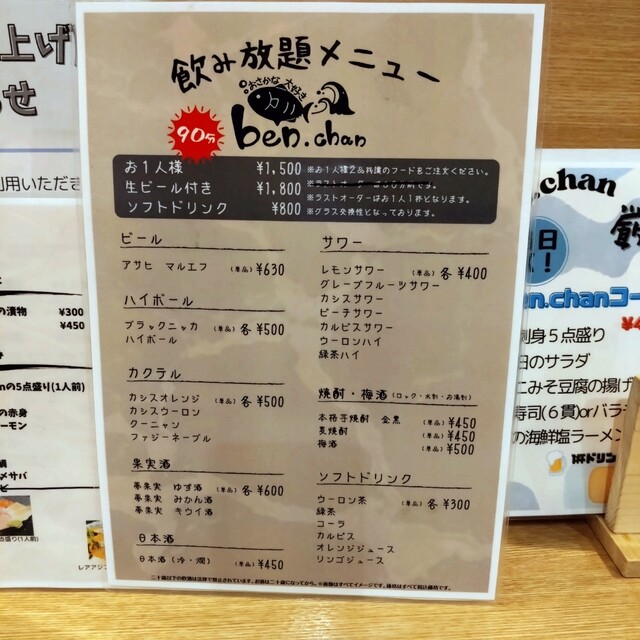 飲み放題メニュー
おさかな 大好き
90分
ben.chan
お1人様 ¥1,500 ※お1人様2品料理のフードをご注文ください。
生ビール付き ¥1,800
ソフトドリンク ¥800
※ラストオーダーはお1人1杯となります。
※グラス交換性となっております。
ビール
アサヒ マルエフ (単品) ¥630
ハイボール
ブラックニッカ (単品) 各 ¥500
ハイボール
カクテル
カシスオレンジ (単品) 各 ¥500
カシスウーロン
クーニャン
ファジーネーブル
果実酒
夢果実 ゆず酒 (単品) 各 ¥600
夢果実 みかん酒
夢果実 キウイ酒
日本酒
日本酒 (冷・燗) (単品) ¥450
サワー
レモンサワー (単品) 各 ¥400
グレープフルーツサワー
カシスサワー
ピーチサワー
カルピスサワー
ウーロンハイ
緑茶ハイ
焼酎・梅酒 (ロック・水割・お湯割)
本格芋焼酎 金黒 (単品) ¥450
麦焼酎 (単品) ¥450
梅酒 (単品) ¥500
ソフトドリンク
ウーロン茶 (単品) 各 ¥300
緑茶
コーラ
カルピス
オレンジジュース
リンゴジュース
二十歳以下の飲酒は法律で禁止されています。お酒は二十歳になってから。※画像はすべてイメージです。価格はすべて税込価格です。
上げ
せ
利用いただき
の漬物 ¥300
¥450
の5点盛り(1人前)
の赤身
ーモン
鯛
メサバ
ビ
盛り(1人前)
レアアジ
chan
飲
日
!
en.chanコー
刺身5点盛り
日のサラダ
こみそ豆腐の揚げ
寿司(6貫)orバラチ
の海鮮塩ラーメン
ドリン